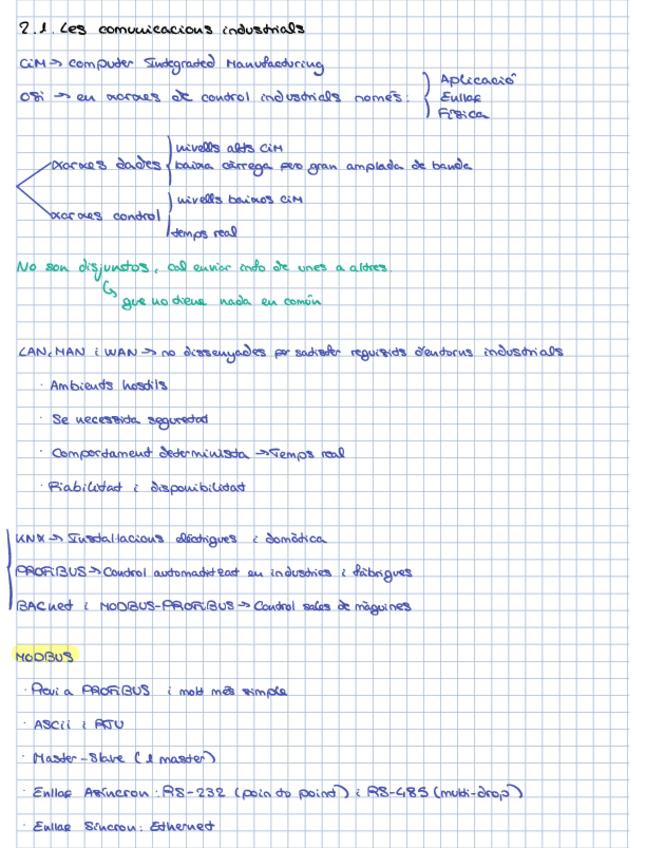 2.1. Les comunicacions industrials
CiM → Computer Integrated Manufacturing
OSi → en xarxes de control industrials només:
Aplicació
Enllaç
Física
xarxes dades
nivells alts CiM
baixa càrrega pero gran amplada de banda
xarxes control
nivells baixos CiM
temps real
No son disjuntos, cal enviar info de unes a altres.
que no tiene nada en común
LAN, MAN i WAN → no dissenyades per satisfer requisits d'entorns industrials
· Ambients hostils
· Se necessita seguretat
· Comportament determinista → Temps real
· Fiabilitat i disponibilitat
KNX → Instal·lacions elèctriques i domòtica
PROFiBUS → Control automatitzat en industries i fàbriques
BACnet i MODBUS-PROFiBUS → Control sales de màquines
MODBUS
· Avi a PROFiBUS i molt més simple
· ASCii i RTU
· Master-Slave (1 master)
· Enllaç Asíncron: RS-232 (point to point) i RS-485 (multi-drop)
· Enllaç Síncron: Ethernet